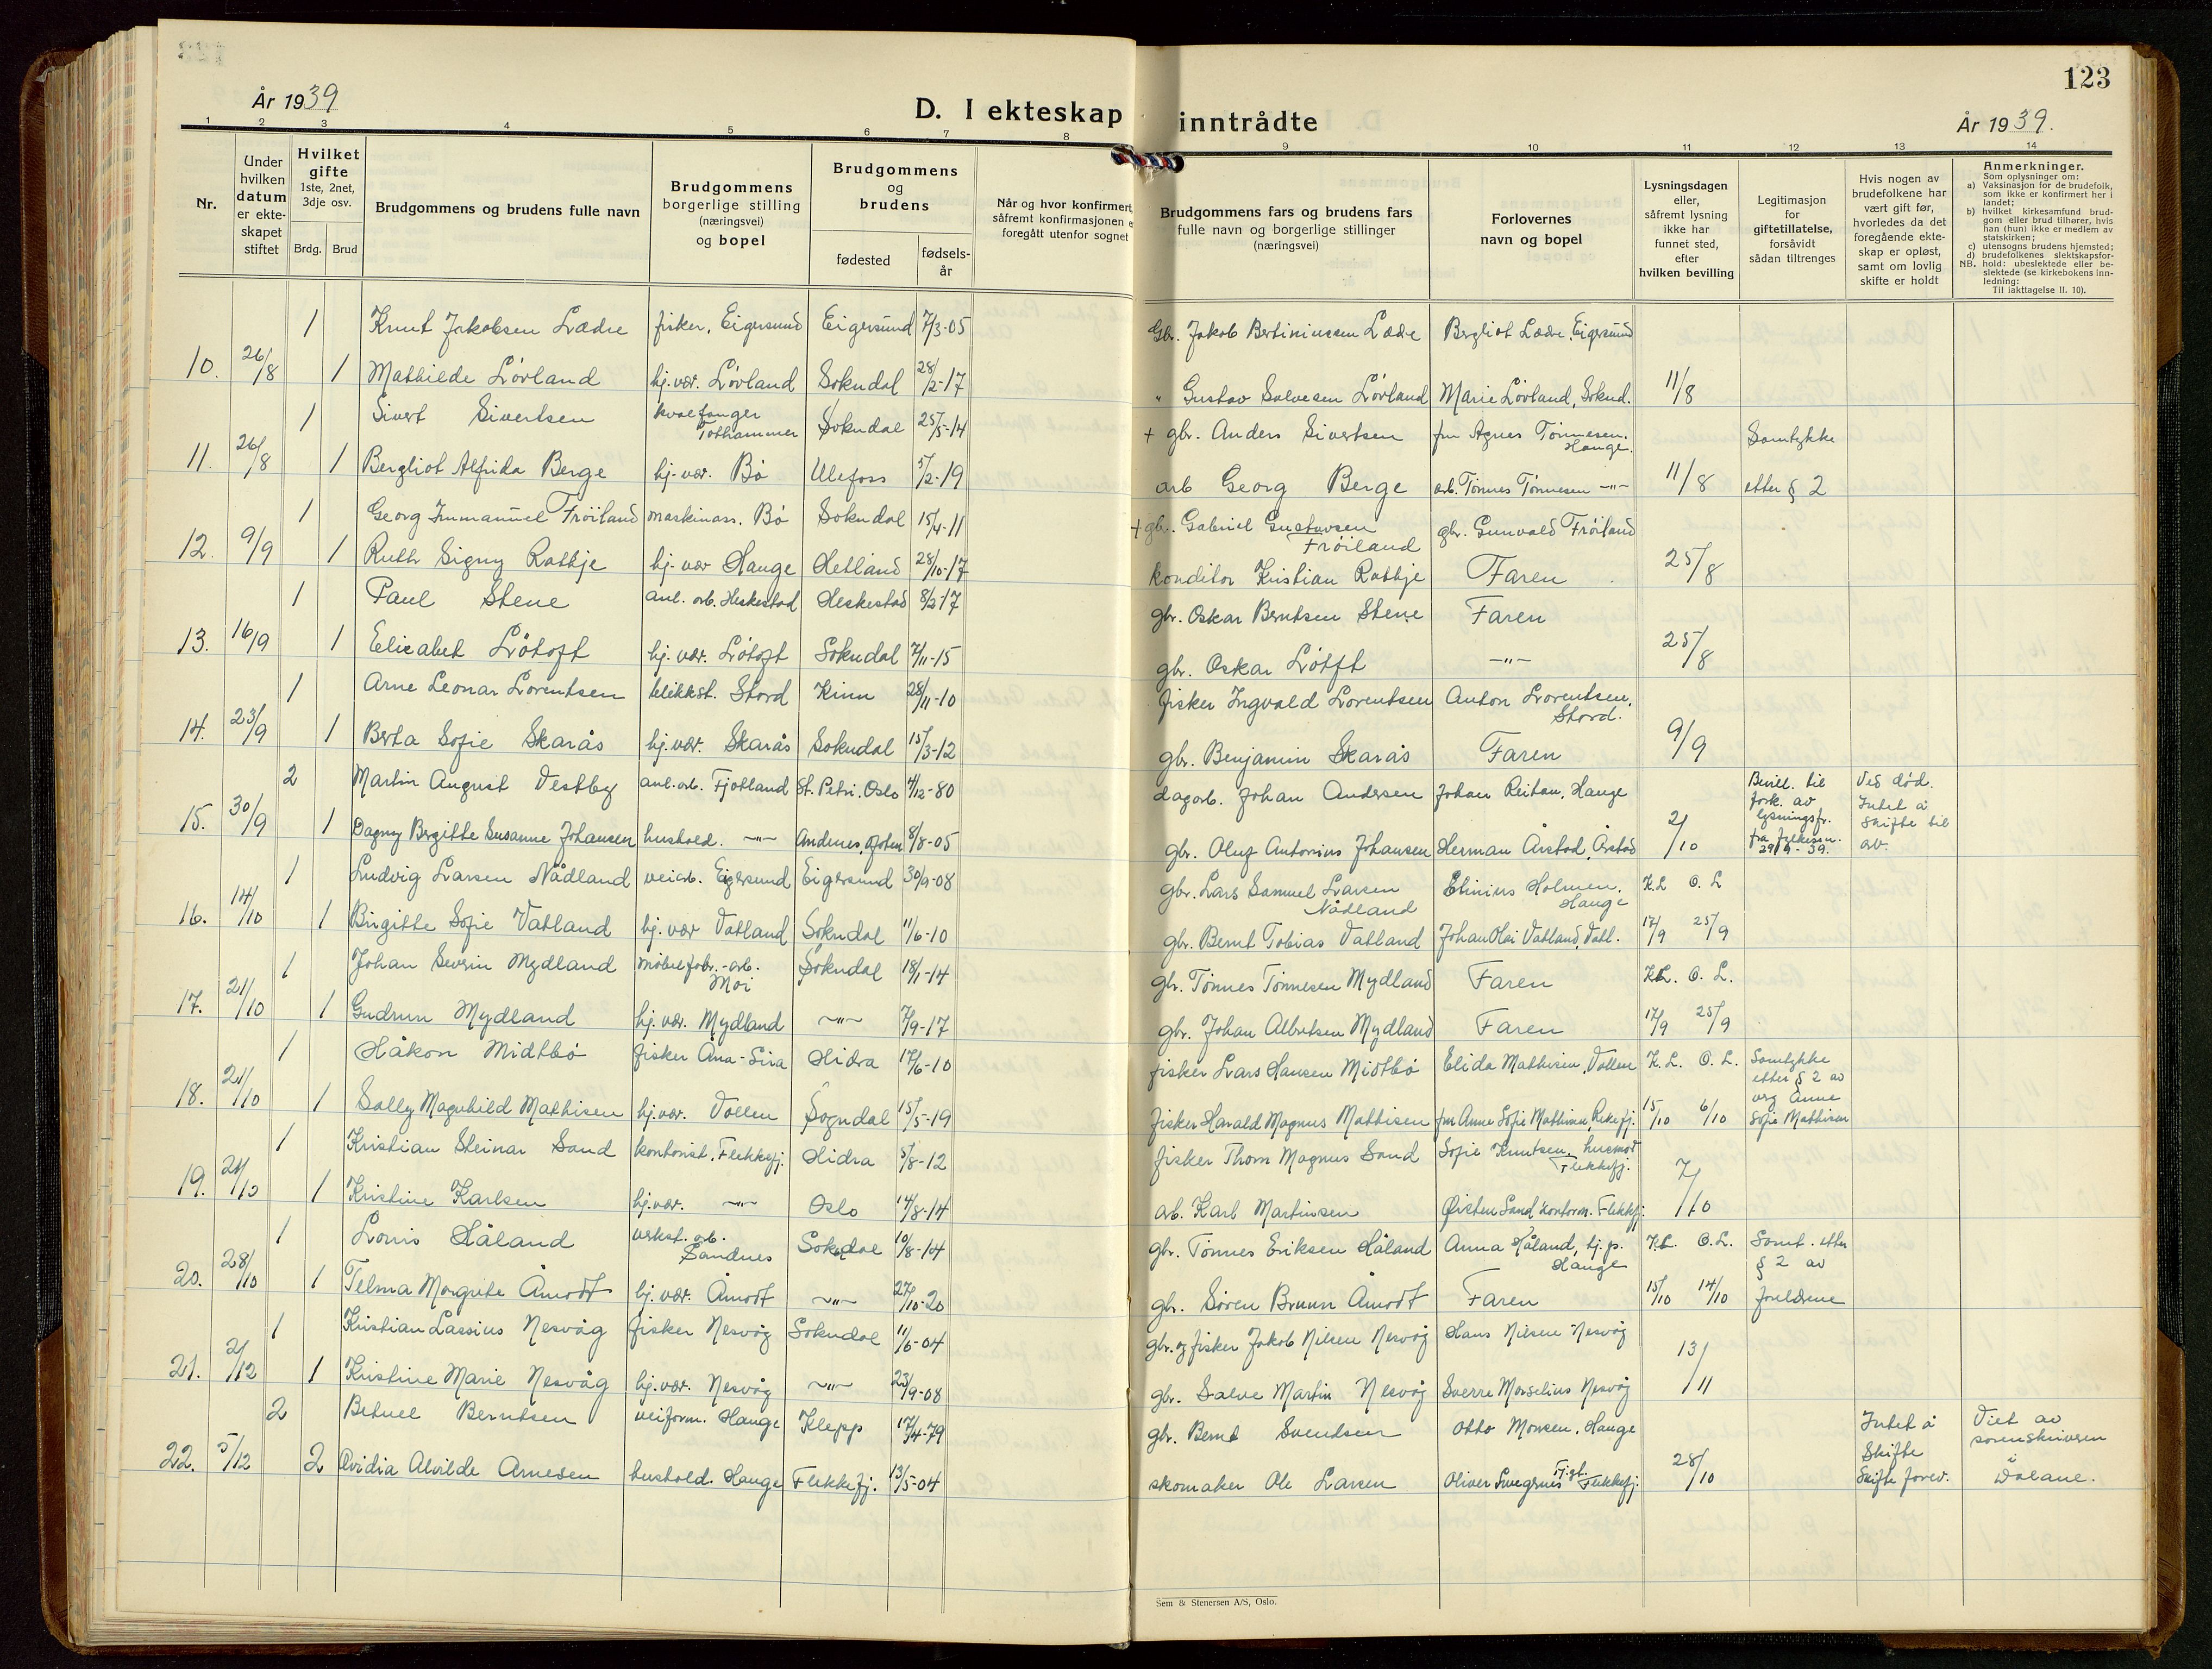 123
År 1939
D. I ekteskap inntrådte
År 1939.
1 2 3 4 5 6 7 8 9 10 11 12 13 14
Nr.
Under
hvilken
datum
er ekte-
skapet
stiftet
Hvilket
gifte
1ste, 2net,
3dje osv.
Brdg. Brud
Brudgommens og brudens fulle navn
Brudgommens
borgerlige stilling
(næringsvei)
og bopel
Brudgommens
og
brudens
fødested
fødsels-
år
Når og hvor konfirmert,
såfremt konfirmasjonen e
foregått utenfor sognet
Brudgommens fars og brudens fars
fulle navn og borgerlige stillinger
(næringsvei)
Forlovernes
navn og bopel
Lysningsdagen
eller,
såfremt lysning
ikke har
funnet sted,
efter
hvilken bevilling
Legitimasjon
for
giftetillatelse,
forsåvidt
sådan tiltrenges
Hvis nogen av
brudefolkene har
vært gift før,
hvorledes da det
foregående ekte-
skap er opløst,
samt om lovlig
skifte er holdt
Anmerkninger.
Som oplysninger om:
a) Vaksinasjon for de brudefolk,
som ikke er konfirmert her i
landet;
b) hvilket kirkesamfund brud-
gom eller brud tilhører, hvis
han (hun) ikke er medlem av
statskirken;
c) utensogns brudens hjemsted;
d) brudefolkenes slektskapsfor-
NB. hold: ubeslektede eller be-
slektede (se kirkebokens inn-
ledning:
Til iakttagelse II. 10).
1 Knut Jakobsen Lædre fisker, Eigersund Eigersund 7/3-05 Gbr. Jakob Bertiniussen Lædre Bergliot Lædre, Eigersund
10. 26/8 1 Mathilde Lövland hj. vær. Lövland Sokndal 28/2-17 " Gustav Salvesen Lövland Marie Lövland, Soknd. 11/8
1 Sivert Sivertsen hvalfanger Tothammer Sokndal 25/5-14 + gbr. Anders Sivertsen fru Agnes Tönnesen, Hauge. Samtykke
11. 26/8 1 Bergliot Alfrida Berge hj. vær. Bö Ulefoss 5/2-19 arb Georg Berge arb. Tönnes Tönnesen -"- 11/8 etter § 2
1 Georg Immanuel Fröiland maskinass. Bö Sokndal 15/4-11 + gbr. Gabriel Gustavsen Fröiland gbr. Gunvald Fröiland
12. 9/9 1 Ruth Signy Rathje hj. vær Hauge Hetland 28/10-17 konditor Kristian Rathje Faren 25/8
1 Paul Stene anl. arb. Heskestad Heskestad 8/2-17 gbr. Oskar Berntsen Stene Faren
13. 16/9 1 Elisabet Lötoft hj. vær. Lötoft Sokndal 7/11-15 gbr. Oskar Lötft -"- 25/8
1 Arne Leonar Lorentsen blikkst. Stord Kinn 28/11-10 fisker Ingvald Lorentsen Anton Lorentsen, Stord.
14. 23/9 1 Berta Sofie Skarås hj. vær. Skarås Sokndal 15/3-12 gbr. Benjamin Skarås Faren 9/9
2 Martin August Vestby anl. arb. Fjotland St. Petri. Oslo 4/12-80 dagarb. Johan Andersen Johan Reitan, Hauge Bevill. til fork. av lysningsfr. Ved död. Intet å
15. 30/9 1 Dagny Bergitte Susanne Johansen hushold. -"- Andenes, Ofoten 8/8-05 gbr. Oluf Antonius Johansen Herman Årstad, Årstad 2/10 fra fylkesm. 29/9-39. skifte til av.
1 Ludvig Larsen Nådland veiarb. Eigersund Eigersund 30/9-08 gbr. Lars Samuel Larsen Nådland Elinius Holmen, Hauge K.L O.L
16. 14/10 1 Birgitte Sofie Vatland hj. vær Vatland Sokndal 11/6-10 gbr. Bernt Tobias Vatland Johan Olai Vatland, Vatl. 17/9 25/9
1 Johan Severin Mydland möbelfabr.-arb. Moi Sokndal 18/1-14 gbr. Tönnes Tönnesen Mydland Faren K.L. O.L.
17. 21/10 1 Gudrun Mydland hj. vær. Mydland -"- 7/9-17 gbr. Johan Albertsen Mydland Faren 17/9 25/9
1 Håkon Midtbö fisker Åna-Sira Hidra 17/6-10 fisker Lars Hansen Midtbö Elida Mathisen, Vollen K.L. O.L. Samtykke etter § 2 av
18. 21/10 1 Solly Magnhild Mathisen hj. vær. Vollen Sogndal 15/5-19 fisker Harald Magnus Mathisen fru Anne Sofie Mathisen, Rekefj. 15/10 6/10 verg Anne Sofie Mathisen
1 Kristian Steinar Sand kontorist, Flekkefj. Hidra 5/8-12 fisker Thom Magnus Sand Sofie Knutsen, husmor Flekkefj.
19. 21/10 1 Kristine Karlsen hj. vær. -"- Oslo 14/8-14 arb. Karl Martinsen Öisten Sand, kontorm. Flekkefj. 7/10
1 Louis Håland verkst. arb. Sandnes Sokndal 10/8-14 gbr. Tönnes Eriksen Håland Anna Håland, hj. p. Hauge K.L. O.L. Samt. etter § 2 av
20. 28/10 1 Telma Margrete Åmodt hj. vær. Åmodt -"- 27/10-20 gbr. Sören Bruun Åmodt Faren 15/10 14/10 foreldrene
1 Kristian Lassius Nesvåg fisker Nesvåg Sokndal 11/6-04 gbr. og fisker Jakob Nilsen Nesvåg Hans Nilsen Nesvåg
21. 2/12 1 Kristine Marie Nesvåg hj. vær. Nesvåg -"- 23/9-08 gbr. Salve Martin Nesvåg Sverre Morselius Nesvåg 13/11
2 Betuel Berntsen veiform. Hauge Klepp 17/4-79 gbr. Bernt Svendsen Otto Monsen, Hauge Intet å Skifte Viet av sorenskriveren i
22. 5/12 2 Ovidia Alvilde Arnesen hushold. Hauge Flekkefj. 13/5-04 skomaker Ole Larsen Oliver Flekkefj. 28/10 Skifte forev. Dalane.
Sem & Stenersen A/S, Oslo.